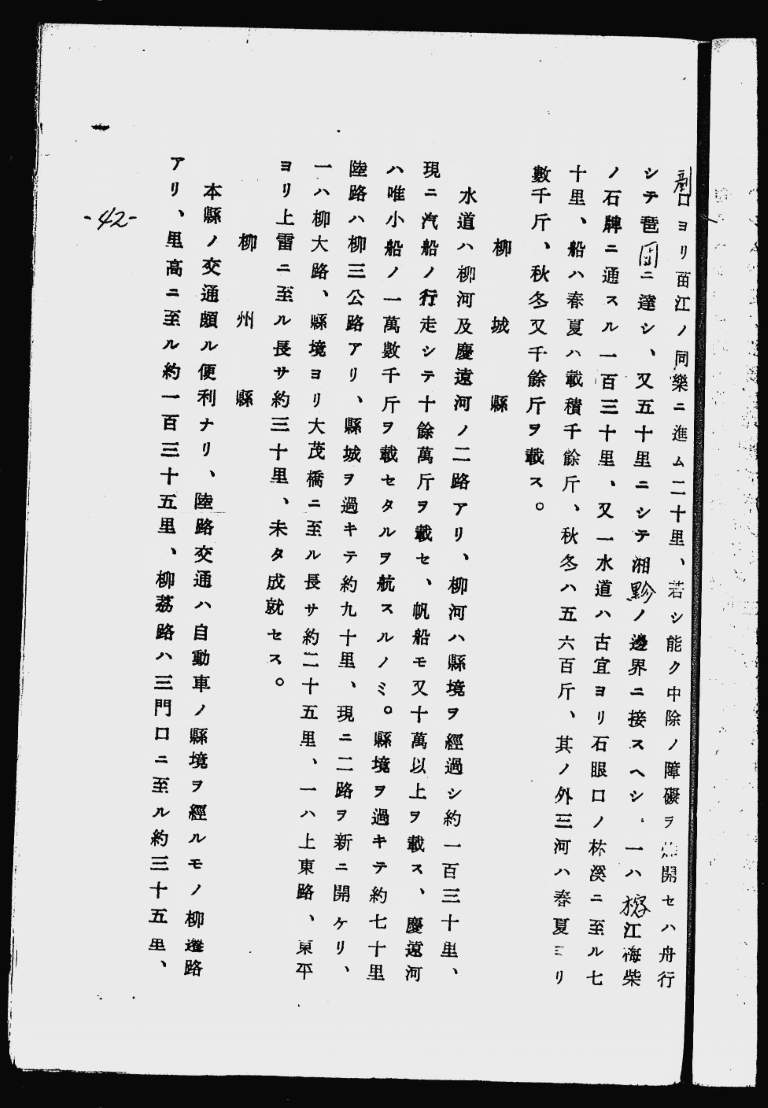 口ヨリ苗江ノ同樂ニ進ム二十里、若シ能ク中除ノ障礙ヲ開セハ舟行
シテ琶團ニ達シ、又五十里ニシテ湘黔ノ邊界ニ接スヘシ、一ハ榕江梅柴
ノ石牌ニ通スル一百三十里、又一水道ハ古宜ヨリ石眼口ノ林溪ニ至ル七
十里、船ハ春夏ハ載積千餘斤、秋冬ハ五六百斤、其ノ外三河ハ春夏ヨリ
數千斤、秋冬又千餘斤ヲ載ス。
柳城縣
水道ハ柳河及慶遠河ノ二路アリ、柳河ハ縣境ヲ經過シ約一百三十里、
現ニ汽船ノ行走シテ十餘萬斤ヲ載セ、帆船モ又十萬以上ヲ載ス、慶遠河
ハ唯小船ノ一萬數千斤ヲ載セタルヲ航スルノミ。縣境ヲ過キテ約七十里
陸路ハ柳三公路アリ、縣城ヲ過キテ約九十里、現ニ二路ヲ新ニ開ケリ、
一ハ柳大路、縣境ヨリ大茂橋ニ至ル長サ約二十五里、一ハ上東路、東平
ヨリ上雷ニ至ル長サ約三十里、未タ成就セス。
柳州縣
本縣ノ交通頗ル便利ナリ、陸路交通ハ自動車ノ縣境ヲ經ルモノ柳邕路
アリ、里高ニ至ル約一百三十五里、柳荔路ハ三門口ニ至ル約三十五里、
-42-